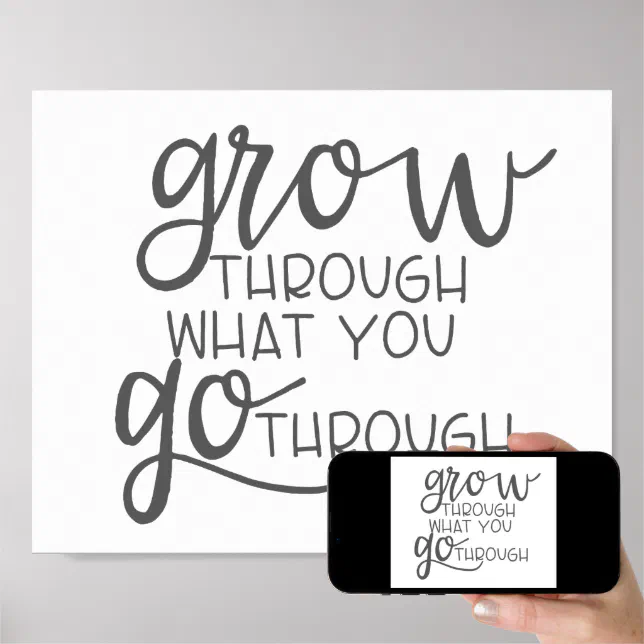 grow
THROUGH
WHAT YOU
go THROUGH
grow
THROUGH
WHAT YOU
go THROUGH